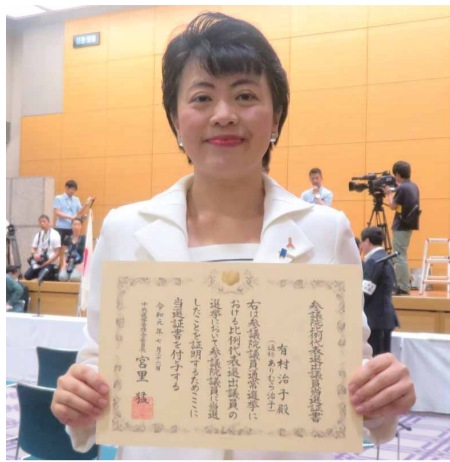 参議院比例代表選出議員当選証書
有村治子殿
(通称ありむら治子)
右は参議院議員通常選挙に
おける比例代表選出議員の
選挙において参議院議員に当選
したことを証明するためここに
当選証書を付与する
令和元年七月二十六日
中央選挙管理会委員長
宮里猛